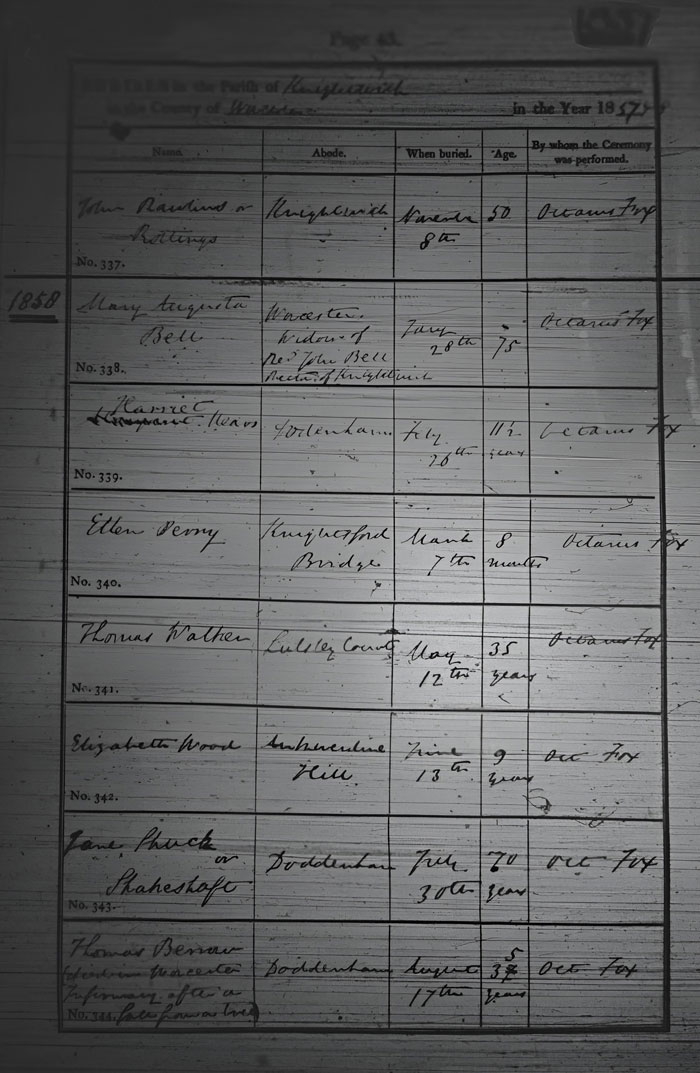 Page 43.
BURIALS in the Parish of Knightwick
in the County of Worcester in the Year 1857 & 8
Name. Abode. When buried. Age. By whom the Ceremony was performed.
John Rawlins or
Rollings
No. 337.
Knightwick
November
8th
50
Octavius Fox
1858
Mary Augusta
Bell
No. 338.
Worcester
Widow of
Revd John Bell
Rector of Knightwick
Jany
28th
75
Octavius Fox
Harriet
Mears
No. 339.
Dodenham
Feby
26th
11½
years
Octavius Fox
Ellen Perry
No. 340.
Knightsford
Bridge
March
7th
8
months
Octavius Fox
Thomas Walker
No. 341.
Lulsley Court
May
12th
35
years
Octavius Fox
Elizabeth Wood
No. 342.
Ankerdine
Hill
June
13th
9
years
Oct Fox
Jane Shuck
or
Shakeshaft
No. 343.
Doddenham
July
30th
70
years
Oct Fox
Thomas Berrow
(died in Worcester
Infirmary after a
No. 344. fall from a tree)
Doddenham
August
17th
35
years
Oct Fox